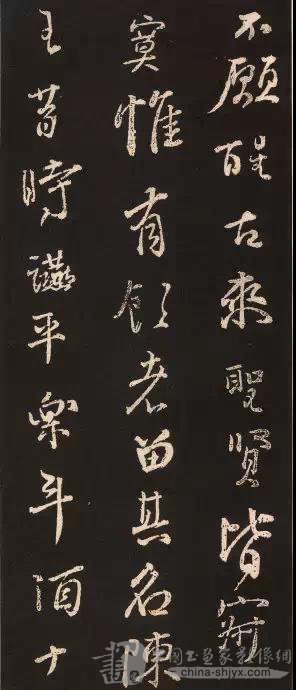 不願醒古來聖賢皆寂
寞惟有飲者留其名陳
王昔時讌平樂斗酒十
國书画家影像網
www.china-shjyx.com